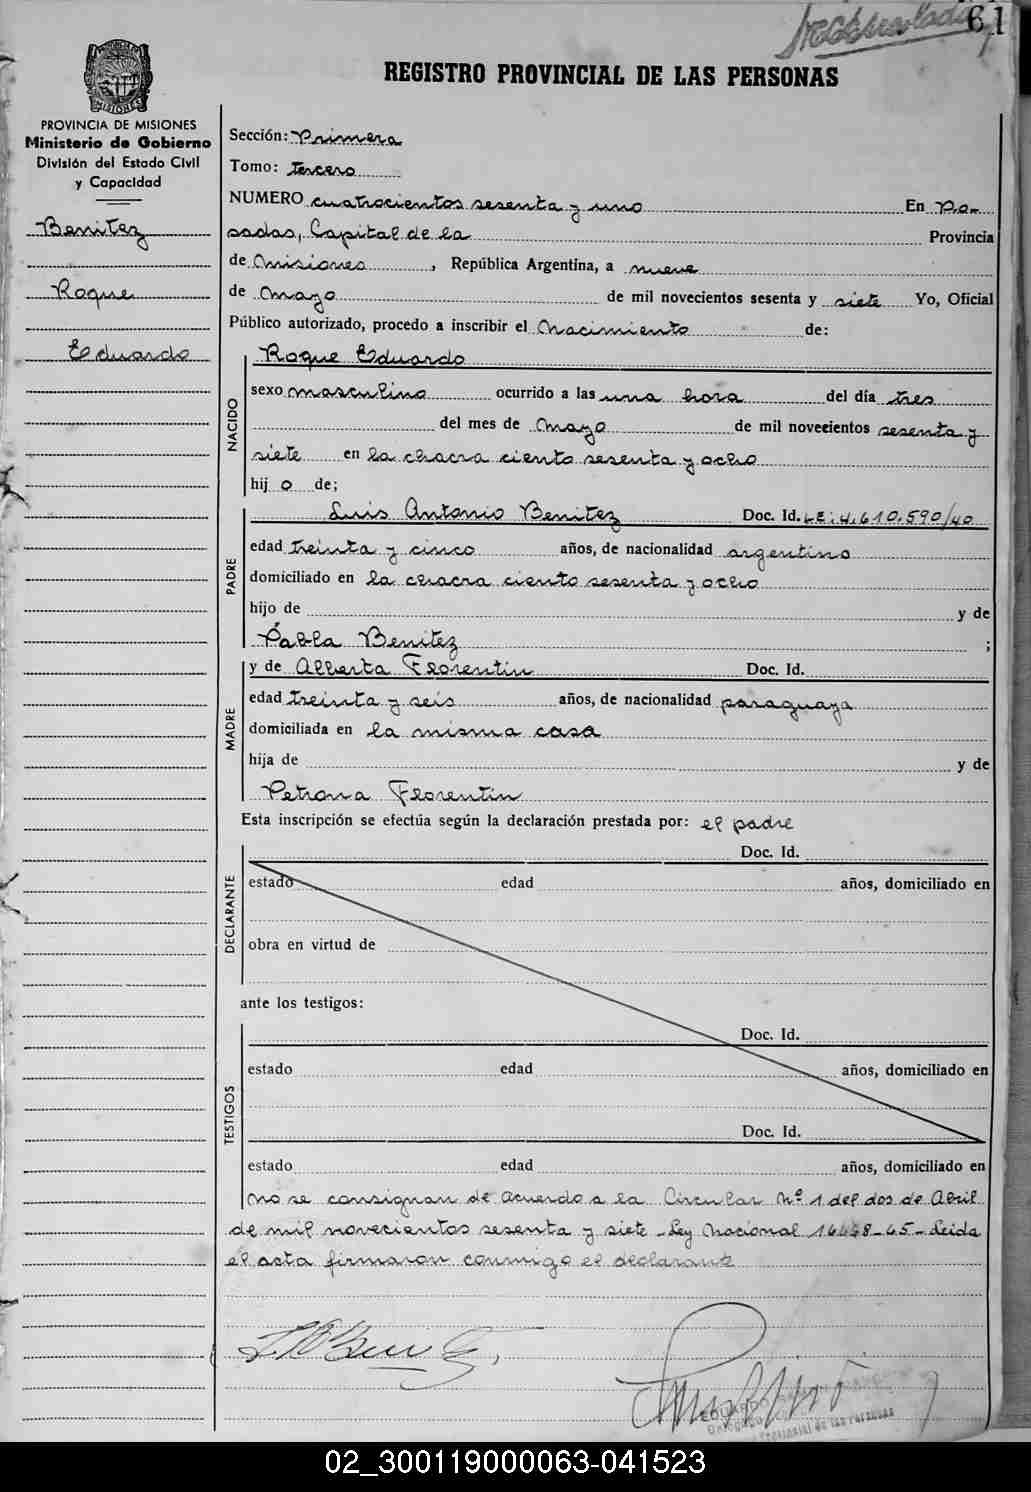 61
REGISTRO PROVINCIAL DE LAS PERSONAS
MISIONES
PROVINCIA DE MISIONES
Ministerio de Gobierno
División del Estado Civil
y Capacidad
Benitez
Roque
Eduardo
Sección: Primera
Tomo: tercero
NUMERO cuatrocientos sesenta y uno En Po-
sadas, Capital de la Provincia
de Misiones, República Argentina, a nueve
de Mayo de mil novecientos sesenta y siete Yo, Oficial
Público autorizado, procedo a inscribir el Nacimiento de:
NACIDO
Roque Eduardo
sexo masculino ocurrido a las una hora del día tres
del mes de Mayo de mil novecientos sesenta y
siete en la chacra ciento sesenta y ocho
hij o de;
PADRE
Luis Antonio Benitez Doc. Id. LE: 4.610.590/40
edad treinta y cinco años, de nacionalidad argentino
domiciliado en la chacra ciento sesenta y ocho
hijo de y de
Pabla Benitez ;
MADRE
y de Alberta Florentin Doc. Id.
edad treinta y seis años, de nacionalidad paraguaya
domiciliada en la misma casa
hija de y de
Petrona Florentin
Esta inscripción se efectúa según la declaración prestada por: el padre
DECLARANTE
Doc. Id.
estado edad años, domiciliado en
obra en virtud de
ante los testigos:
TESTIGOS
Doc. Id.
estado edad años, domiciliado en
Doc. Id.
estado edad años, domiciliado en
no se consignan de acuerdo a la Circular Nº 1 del dos de Abril
de mil novecientos sesenta y siete - Ley Nacional 16478-65 - Leida
el acta firmaron conmigo el declarante
EDUARDO
Provincial de las Personas
02_300119000063-041523